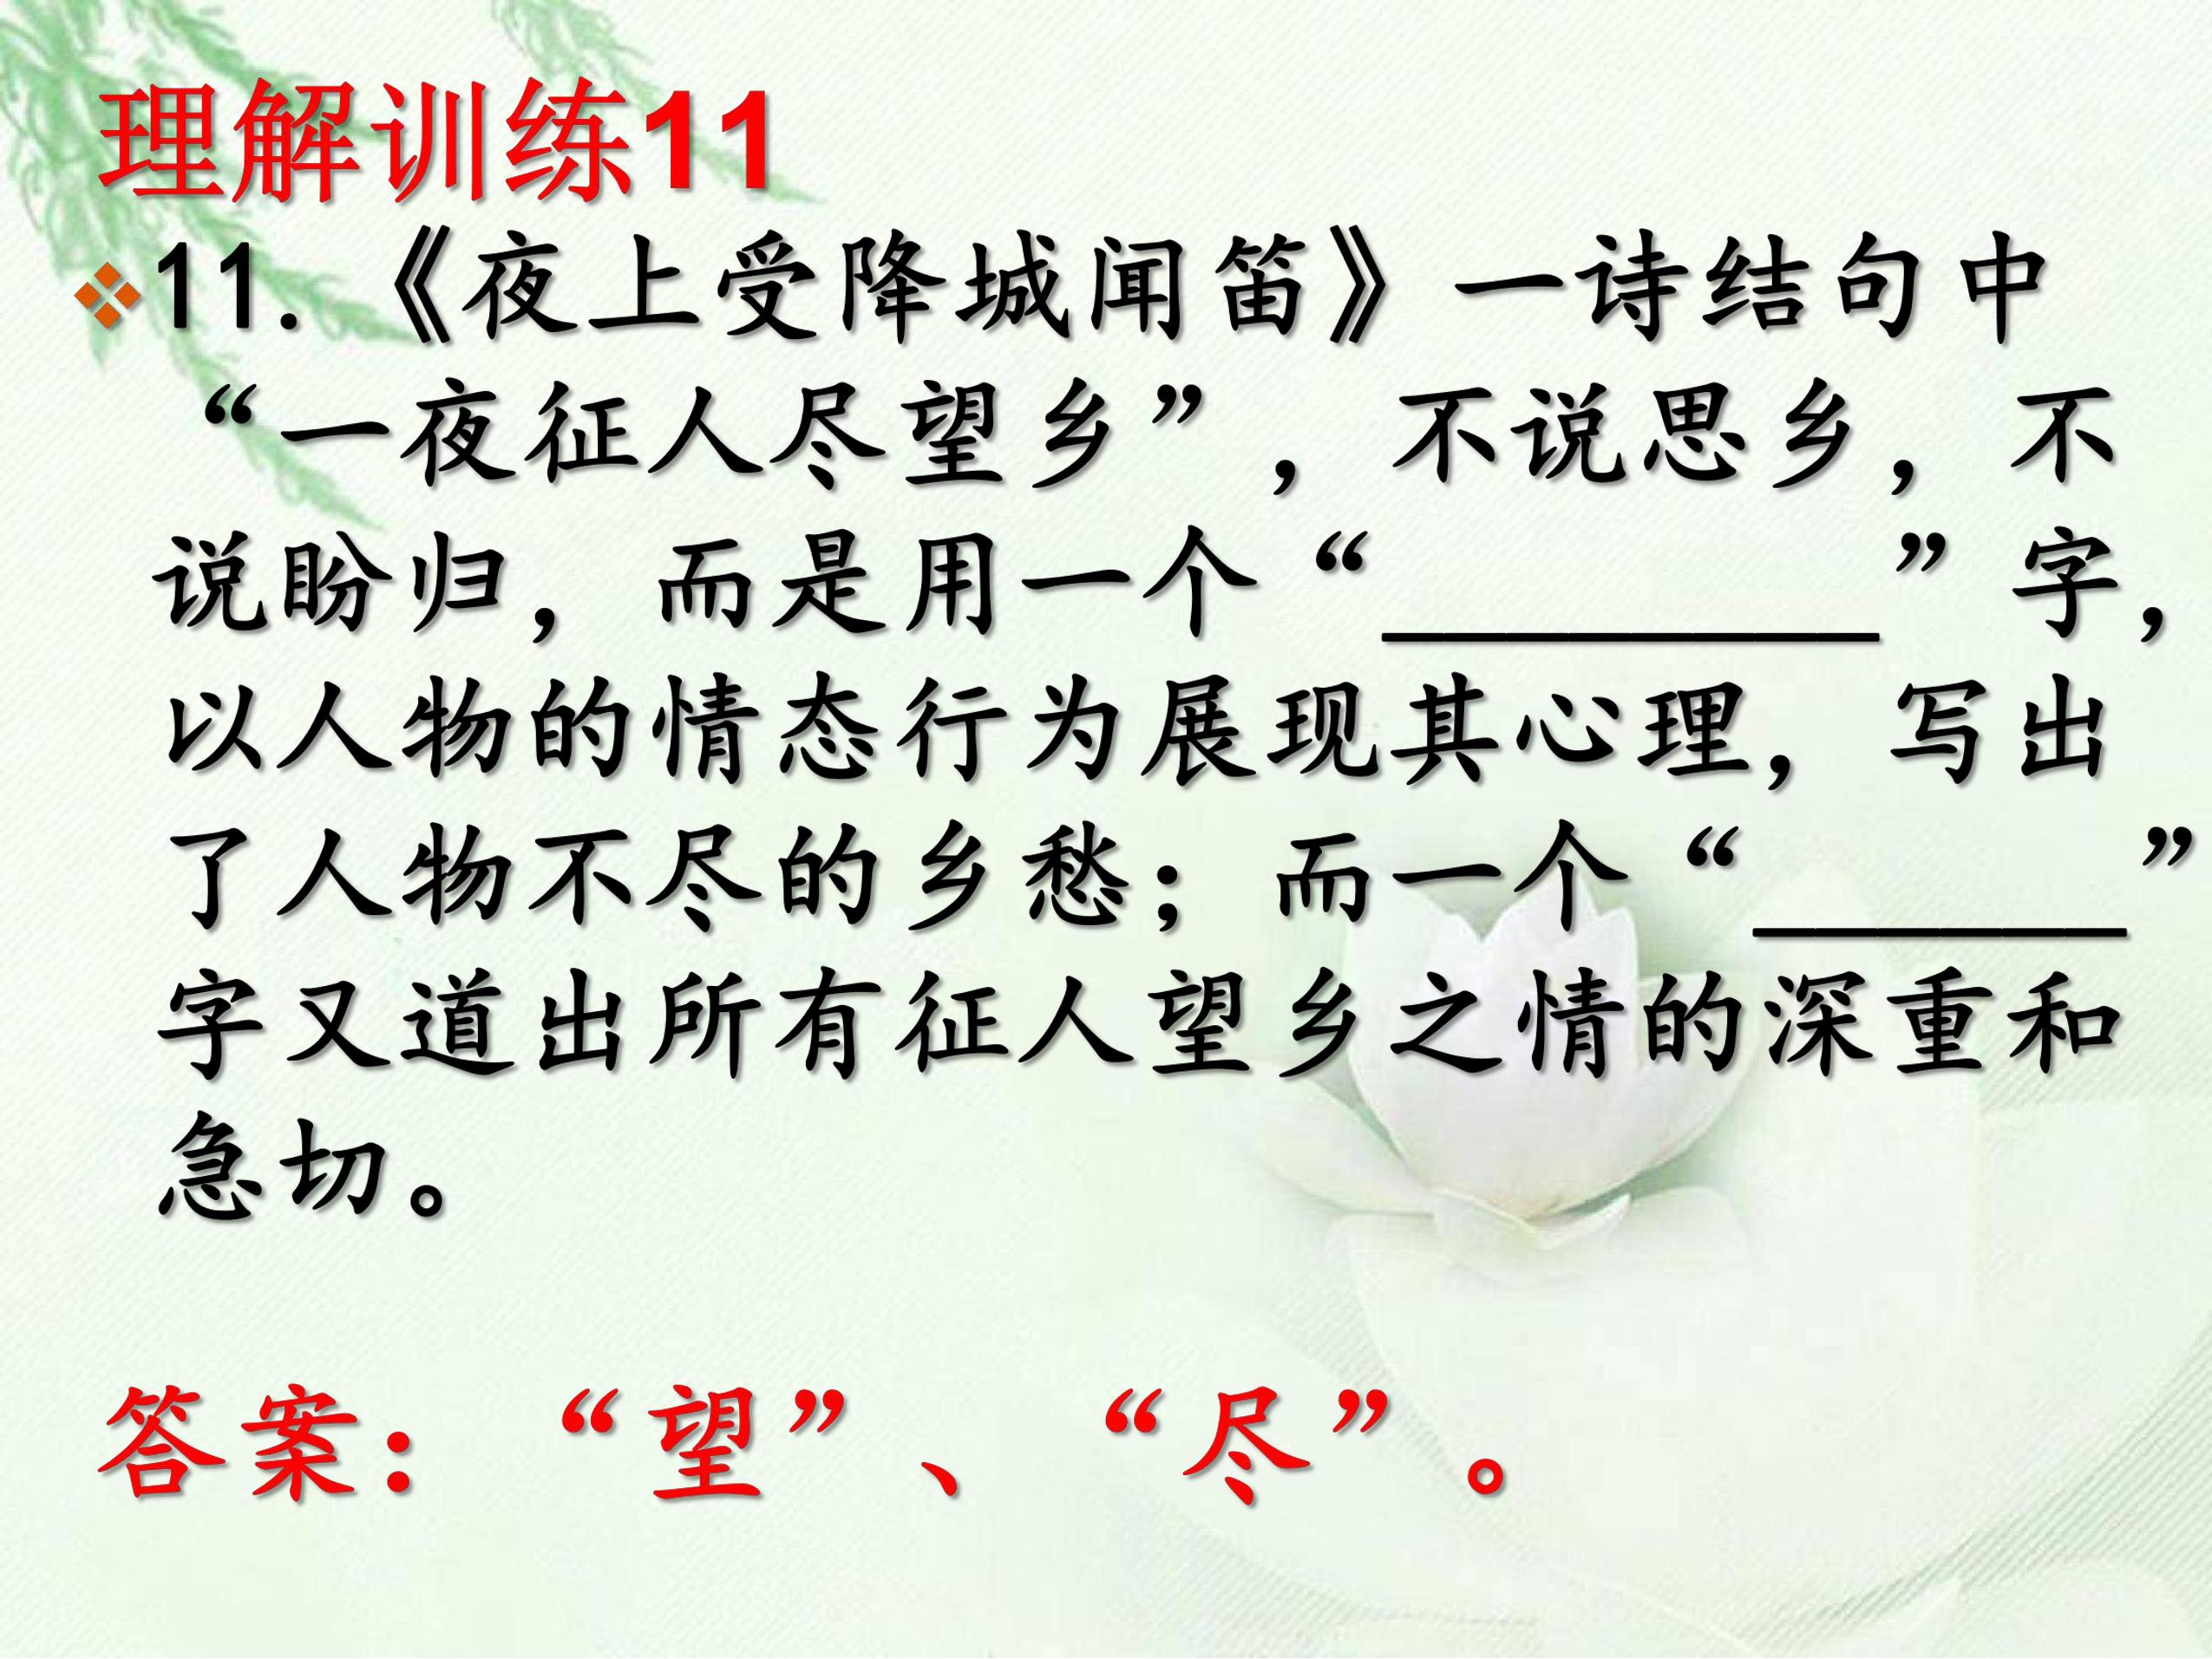 理解训练11
11.《夜上受降城闻笛》一诗结句中
“一夜征人尽望乡”，不说思乡，不
说盼归，而是用一个“________”字，
以人物的情态行为展现其心理，写出
了人物不尽的乡愁；而一个“______”
字又道出所有征人望乡之情的深重和
急切。
答案：“望”、“尽”。